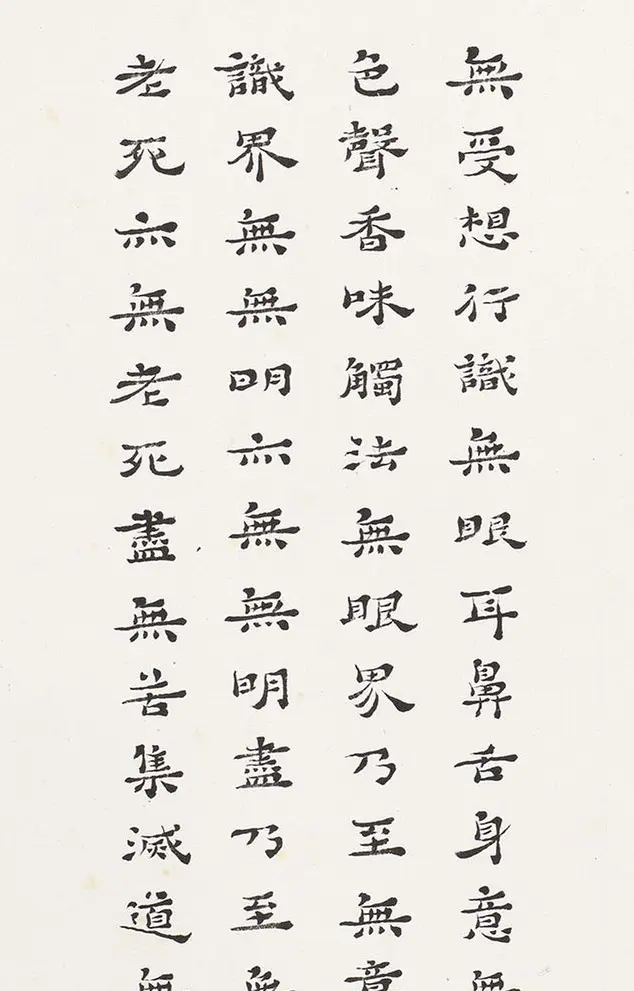 無受想行識無眼耳鼻舌身意無
色聲香味觸法無眼界乃至無意
識界無無明亦無無明盡乃至無
老死亦無老死盡無苦集滅道無